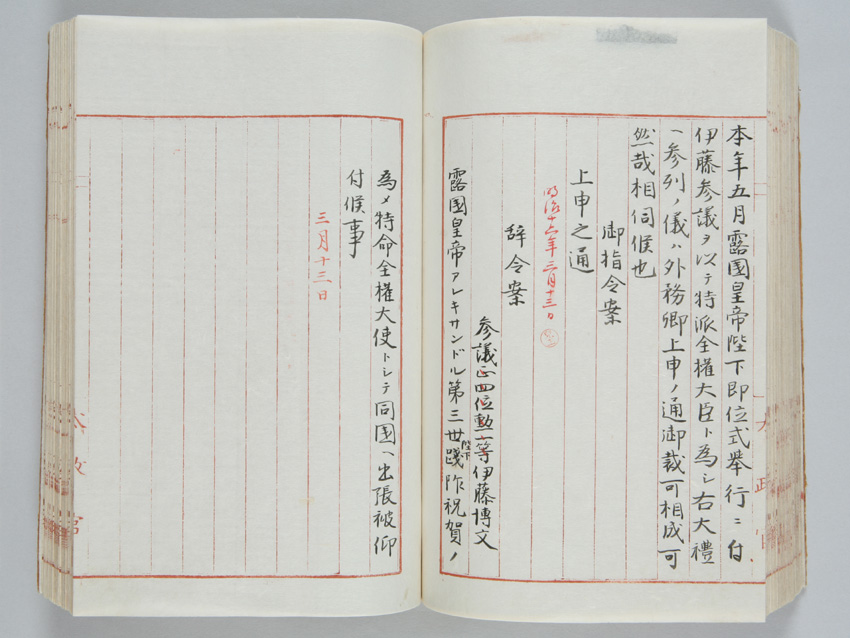 本年五月露國皇帝陛下即位式舉行ニ付
伊藤参議ヲ以テ特派全權大臣ト為シ右大禮
ヘ参列ノ儀ハ外務卿上申ノ通御裁可相成可
然哉相伺候也
御指令案
上申之通
明治十六年三月十三日
辞令案
参議正四位勲一等伊藤博文
露国皇帝アレキサンドル第三世陛下踐祚祝賀ノ
為メ特命全權大使トシテ同國ヘ出張被仰
付候事
三月十三日
太政官
太政官